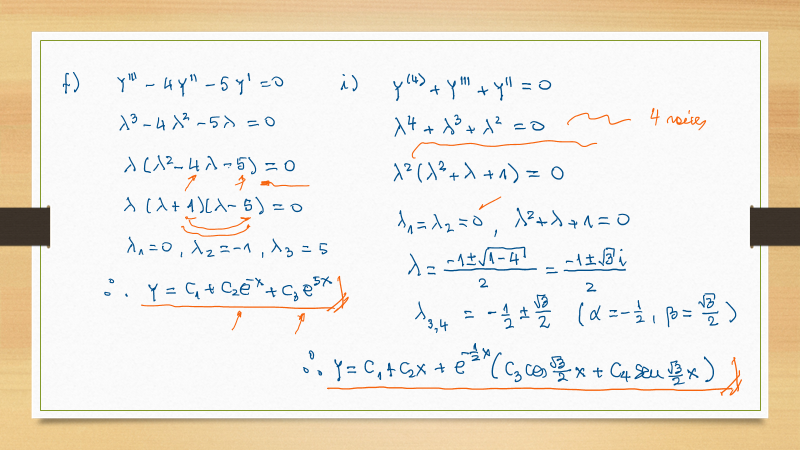 f) y''' - 4y'' - 5y' = 0
λ³ - 4λ² - 5λ = 0
λ(λ² - 4λ - 5) = 0
λ(λ + 1)(λ - 5) = 0
λ₁ = 0, λ₂ = -1, λ₃ = 5
∴ y = C₁ + C₂e⁻ˣ + C₃e⁵ˣ
i) y⁽⁴⁾ + y''' + y'' = 0
λ⁴ + λ³ + λ² = 0 4 raíces
λ²(λ² + λ + 1) = 0
λ₁ = λ₂ = 0, λ² + λ + 1 = 0
λ = (-1 ± √(1-4))/2 = (-1 ± √3 i)/2
λ₃,₄ = -1/2 ± √3/2 (α = -1/2, β = √3/2)
∴ y = C₁ + C₂x + e^(-1/2 x) (C₃ cos √3/2 x + C₄ sen √3/2 x)